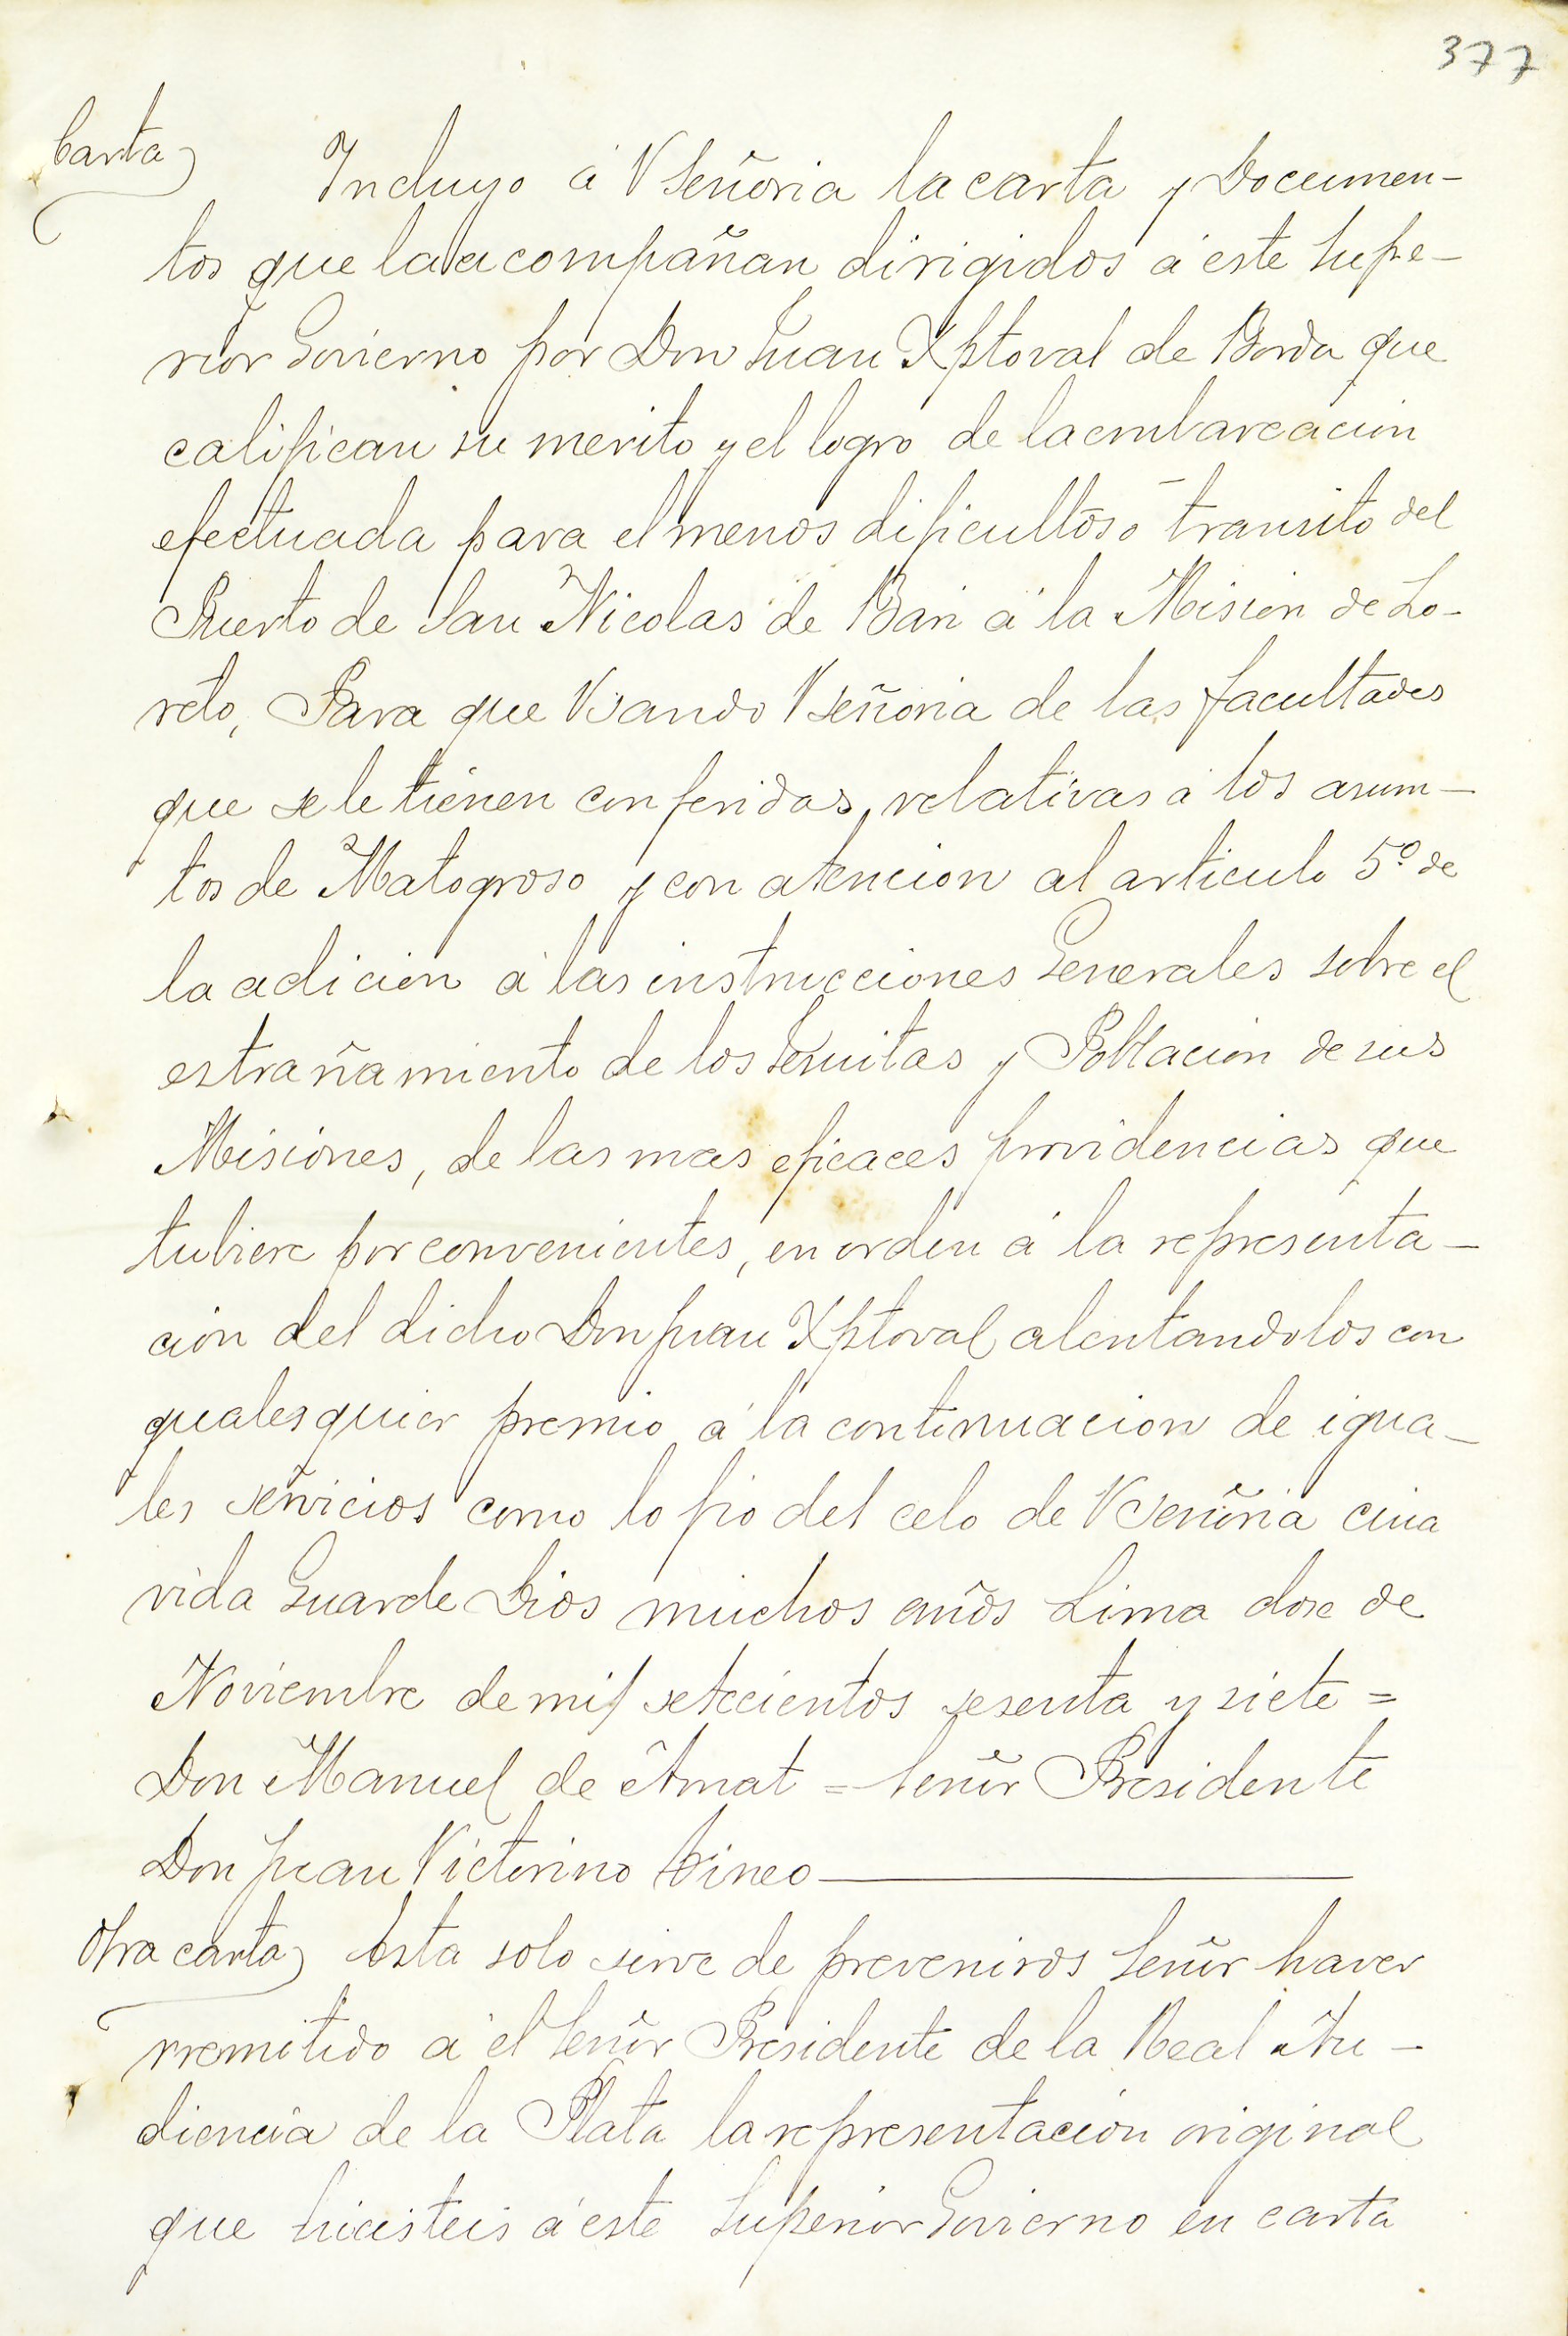 377
Carta
Incluyo á VSeñoria la carta y Documen-
tos que la acompañan dirigidos á este Supe-
rior Govierno por Don Juan Xptoval de Borda que
califican su merito y el logro de la embarcacion
efectuada para el menos dificultoso transito del
Puerto de San Nicolas de Bari á la Mision de Lo-
reto, Para que Vsando Vseñoria de las facultades
que se le tienen conferidas, relativas á los asum-
tos de Matogroso y con atencion al articulo 5º de
la adicion á las instrucciones Generales sobre el
estrañamiento de los Jesuitas y Poblacion de sus
Misiones, de las mas eficaces providencias que
tubiere por convenientes, en orden á la representa-
cion del dicho Don Juan Xptoval alentandolos con
qualesquier premio á la continuacion de igua-
les servicios como lo fio del celo de VSeñoria cuia
vida Guarde Dios muchos años Lima dose de
Noviembre de mil setecientos sesenta y siete =
Don Manuel de Amat = Señor Presidente
Don Juan Victorino Tineo
Otra carta
Esta solo sirve de preveniros Señor haver
rremitido á el Señor Presidente de la Real Au-
diencia de la Plata la representacion original
que hicisteis á este Superior Govierno en carta